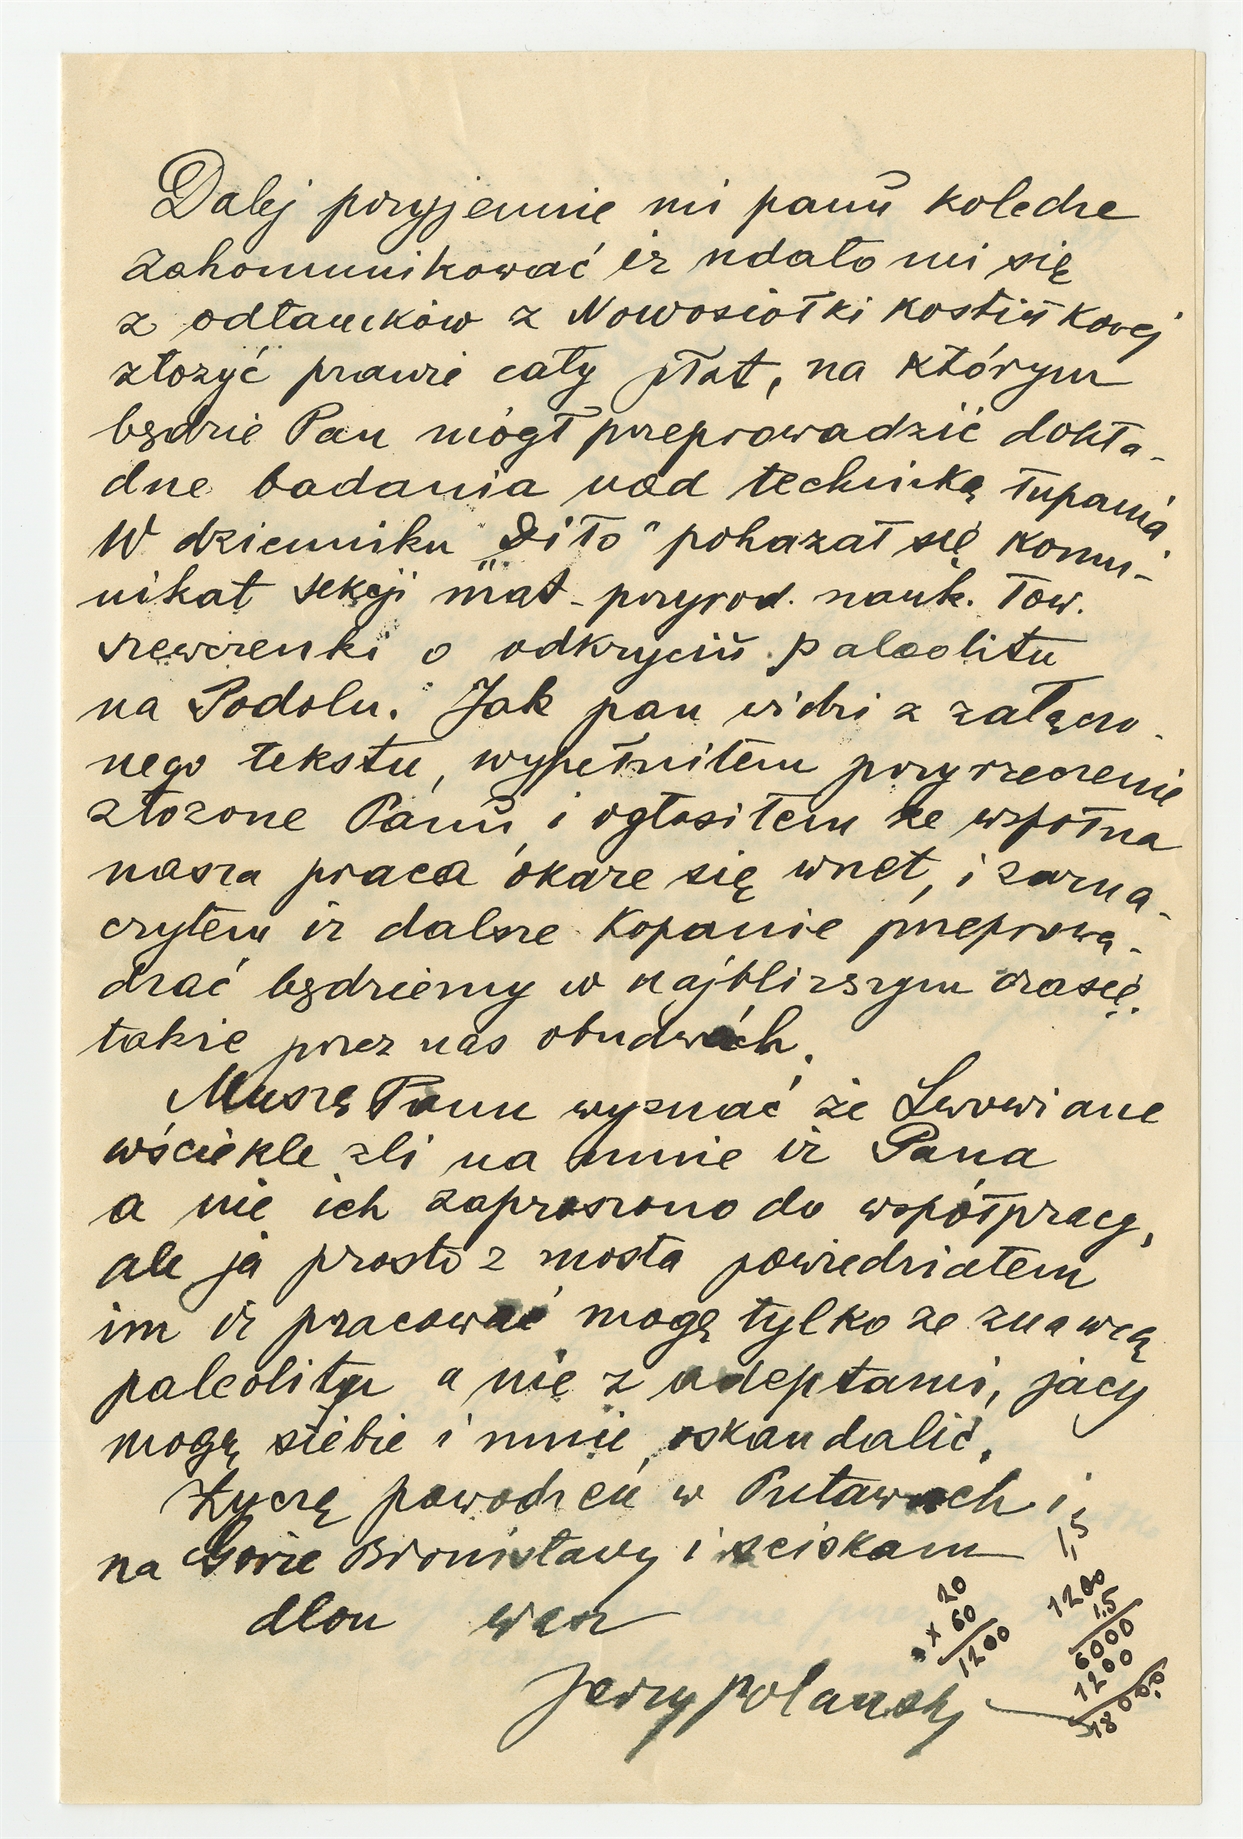 Dalej przyjemnie mi panu koledze
zakomunikować iż udało mi się
z odłamków z Nowosiołki Kostiukowej
złożyć prawie cały płat, na którym
będzie Pan mógł przeprowadzić dokła-
dne badania nad techniką łupania.
W dzienniku „Diło" pokazał się komu-
nikat sekcji mat-przyrod. nauk. Tow.
szewczenki o odkryciu paleolitu
na Podolu. Jak pan widzi z załączo-
nego tekstu, wypełniłem przyrzeczenie
złożone Panu i ogłosiłem że wspólna
nasza praca okaże się wnet, i zazna-
czyłem iż dalsze Kopanie przeprowa-
dzać będziemy w najbliższym czasie
także przez nas obudwóch.
Muszę Panu wyznać że Lwowiane
wściekle źli na mnie iż Pana
a nie ich zaproszono do współpracy,
ale ja prosto z mosta powiedziałem
im iż pracować mogę tylko ze znawcą
paleolitu a nie z adeptami, jacy
mogą siebie i mnie oskandalić.
Życzę powodzeń w Puławach i
na Górze Bronisławy i ściskam
dłoń wasz
Jerzy Polanskyj
20
x 60
1200
1,5
1200
1.5
6000
1200
1800.0